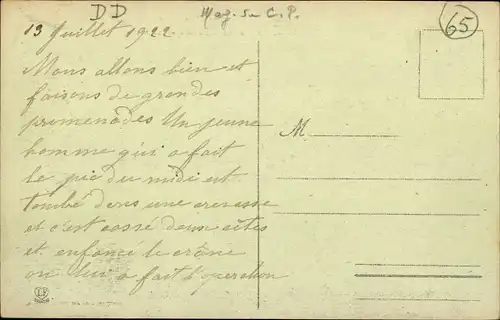 DD
Mag. Su C.P.
65
13 Juillet 1922
Nous allons bien et
faisons de grandes
promenades Un jeune
homme qui a fait
le pic du midi est
tombé dans une crevasse
et c'est cassé deux côtes
et enfoncé le crâne
on lui a fait l'operation
M